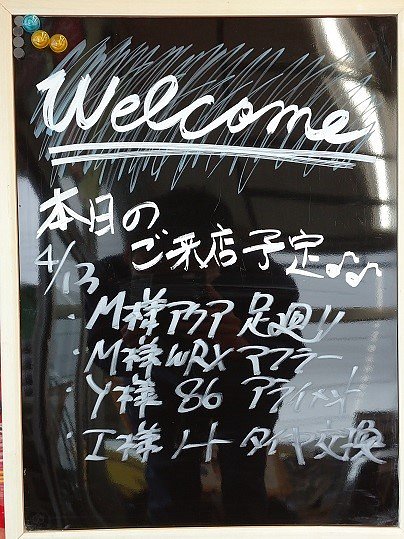 Welcome
本日の
4/13 ご来店予定♪♫
・M様 アクア 足廻り
・M様 WRX マフラー
・Y様 86 アライメント
・I様 ノート タイヤ交換